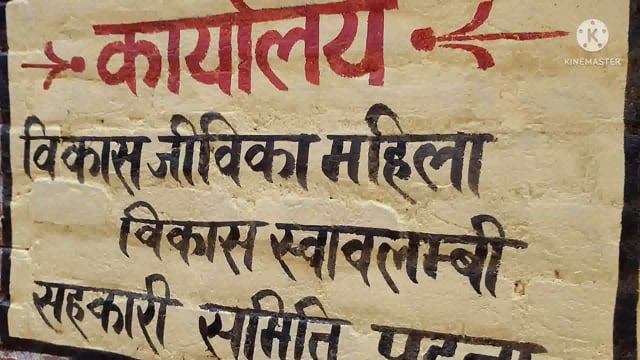 कार्यालय
विकास जीविका महिला
विकास स्वावलम्बी
सहकारी समिति
KINEMASTER